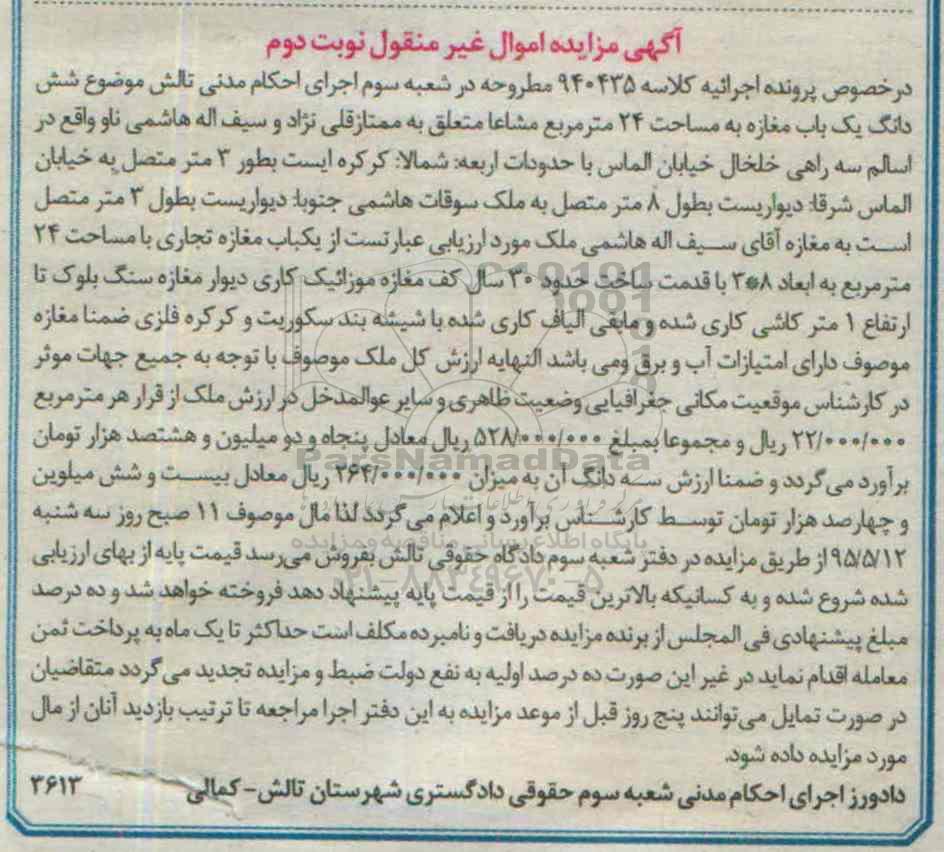 آگهی مزایده اموال غیر منقول نوبت دوم
درخصوص پرونده اجرائیه کلاسه ۹۴۰۴۳۵ مطروحه در شعبه سوم اجرای احکام مدنی تالش موضوع شش
دانگ یک باب مغازه به مساحت ۲۴ مترمربع مشاعا متعلق به ممتازقلی نژاد و سیف اله هاشمی ناو واقع در
اسالم سه راهی خلخال خیابان الماس با حدودات اربعه: شمالا: کرکره ایست بطور ۳ متر متصل به خیابان
الماس شرقا: دیواریست بطول ۸ متر متصل به ملک سوقات هاشمی جنوبا: دیواریست بطول ۳ متر متصل
است به مغازه آقای سیف اله هاشمی ملک مورد ارزیابی عبارتست از یکباب مغازه تجاری با مساحت ۲۴
مترمربع به ابعاد ۸*۳ با قدمت ساخت حدود ۳۰ سال کف مغازه موزائیک کاری دیوار مغازه سنگ بلوک تا
ارتفاع ۱ متر کاشی کاری شده و مابقی الیاف کاری شده با شیشه بند سکوریت و کرکره فلزی ضمنا مغازه
موصوف دارای امتیازات آب و برق ومی باشد النهایه ارزش کل ملک موصوف با توجه به جمیع جهات موثر
در کارشناس موقعیت مکانی جغرافیایی وضعیت ظاهری و سایر عوالمدخل در ارزش ملک از قرار هر مترمربع
۲۲/۰۰۰/۰۰۰ ریال و مجموعا بمبلغ ۵۲۸/۰۰۰/۰۰۰ ریال معادل پنجاه و دو میلیون و هشتصد هزار تومان
برآورد می‌گردد و ضمنا ارزش سه دانگ آن به میزان ۲۶۴/۰۰۰/۰۰۰ ریال معادل بیست و شش میلوین
و چهارصد هزار تومان توسط کارشناس برآورد و اعلام می‌گردد لذا مال موصوف ۱۱ صبح روز سه شنبه
۹۵/۵/۱۲ از طریق مزایده در دفتر شعبه سوم دادگاه حقوقی تالش بفروش می‌رسد قیمت پایه از بهای ارزیابی
شده شروع شده و به کسانیکه بالاترین قیمت را از قیمت پایه پیشنهاد دهد فروخته خواهد شد و ده درصد
مبلغ پیشنهادی فی المجلس از برنده مزایده دریافت و نامبرده مکلف است حداکثر تا یک ماه به پرداخت ثمن
معامله اقدام نماید در غیر این صورت ده درصد اولیه به نفع دولت ضبط و مزایده تجدید می گردد متقاضیان
در صورت تمایل می‌توانند پنج روز قبل از موعد مزایده به این دفتر اجرا مراجعه تا ترتیب بازدید آنان از مال
مورد مزایده داده شود.
دادورز اجرای احکام مدنی شعبه سوم حقوقی دادگستری شهرستان تالش- کمالی ۳۶۱۳
ParsNamadData
پایگاه اطلاع رسانی مناقصه و مزایده
۰۲۱-۸۸۳۴۹۶۷۰-۵